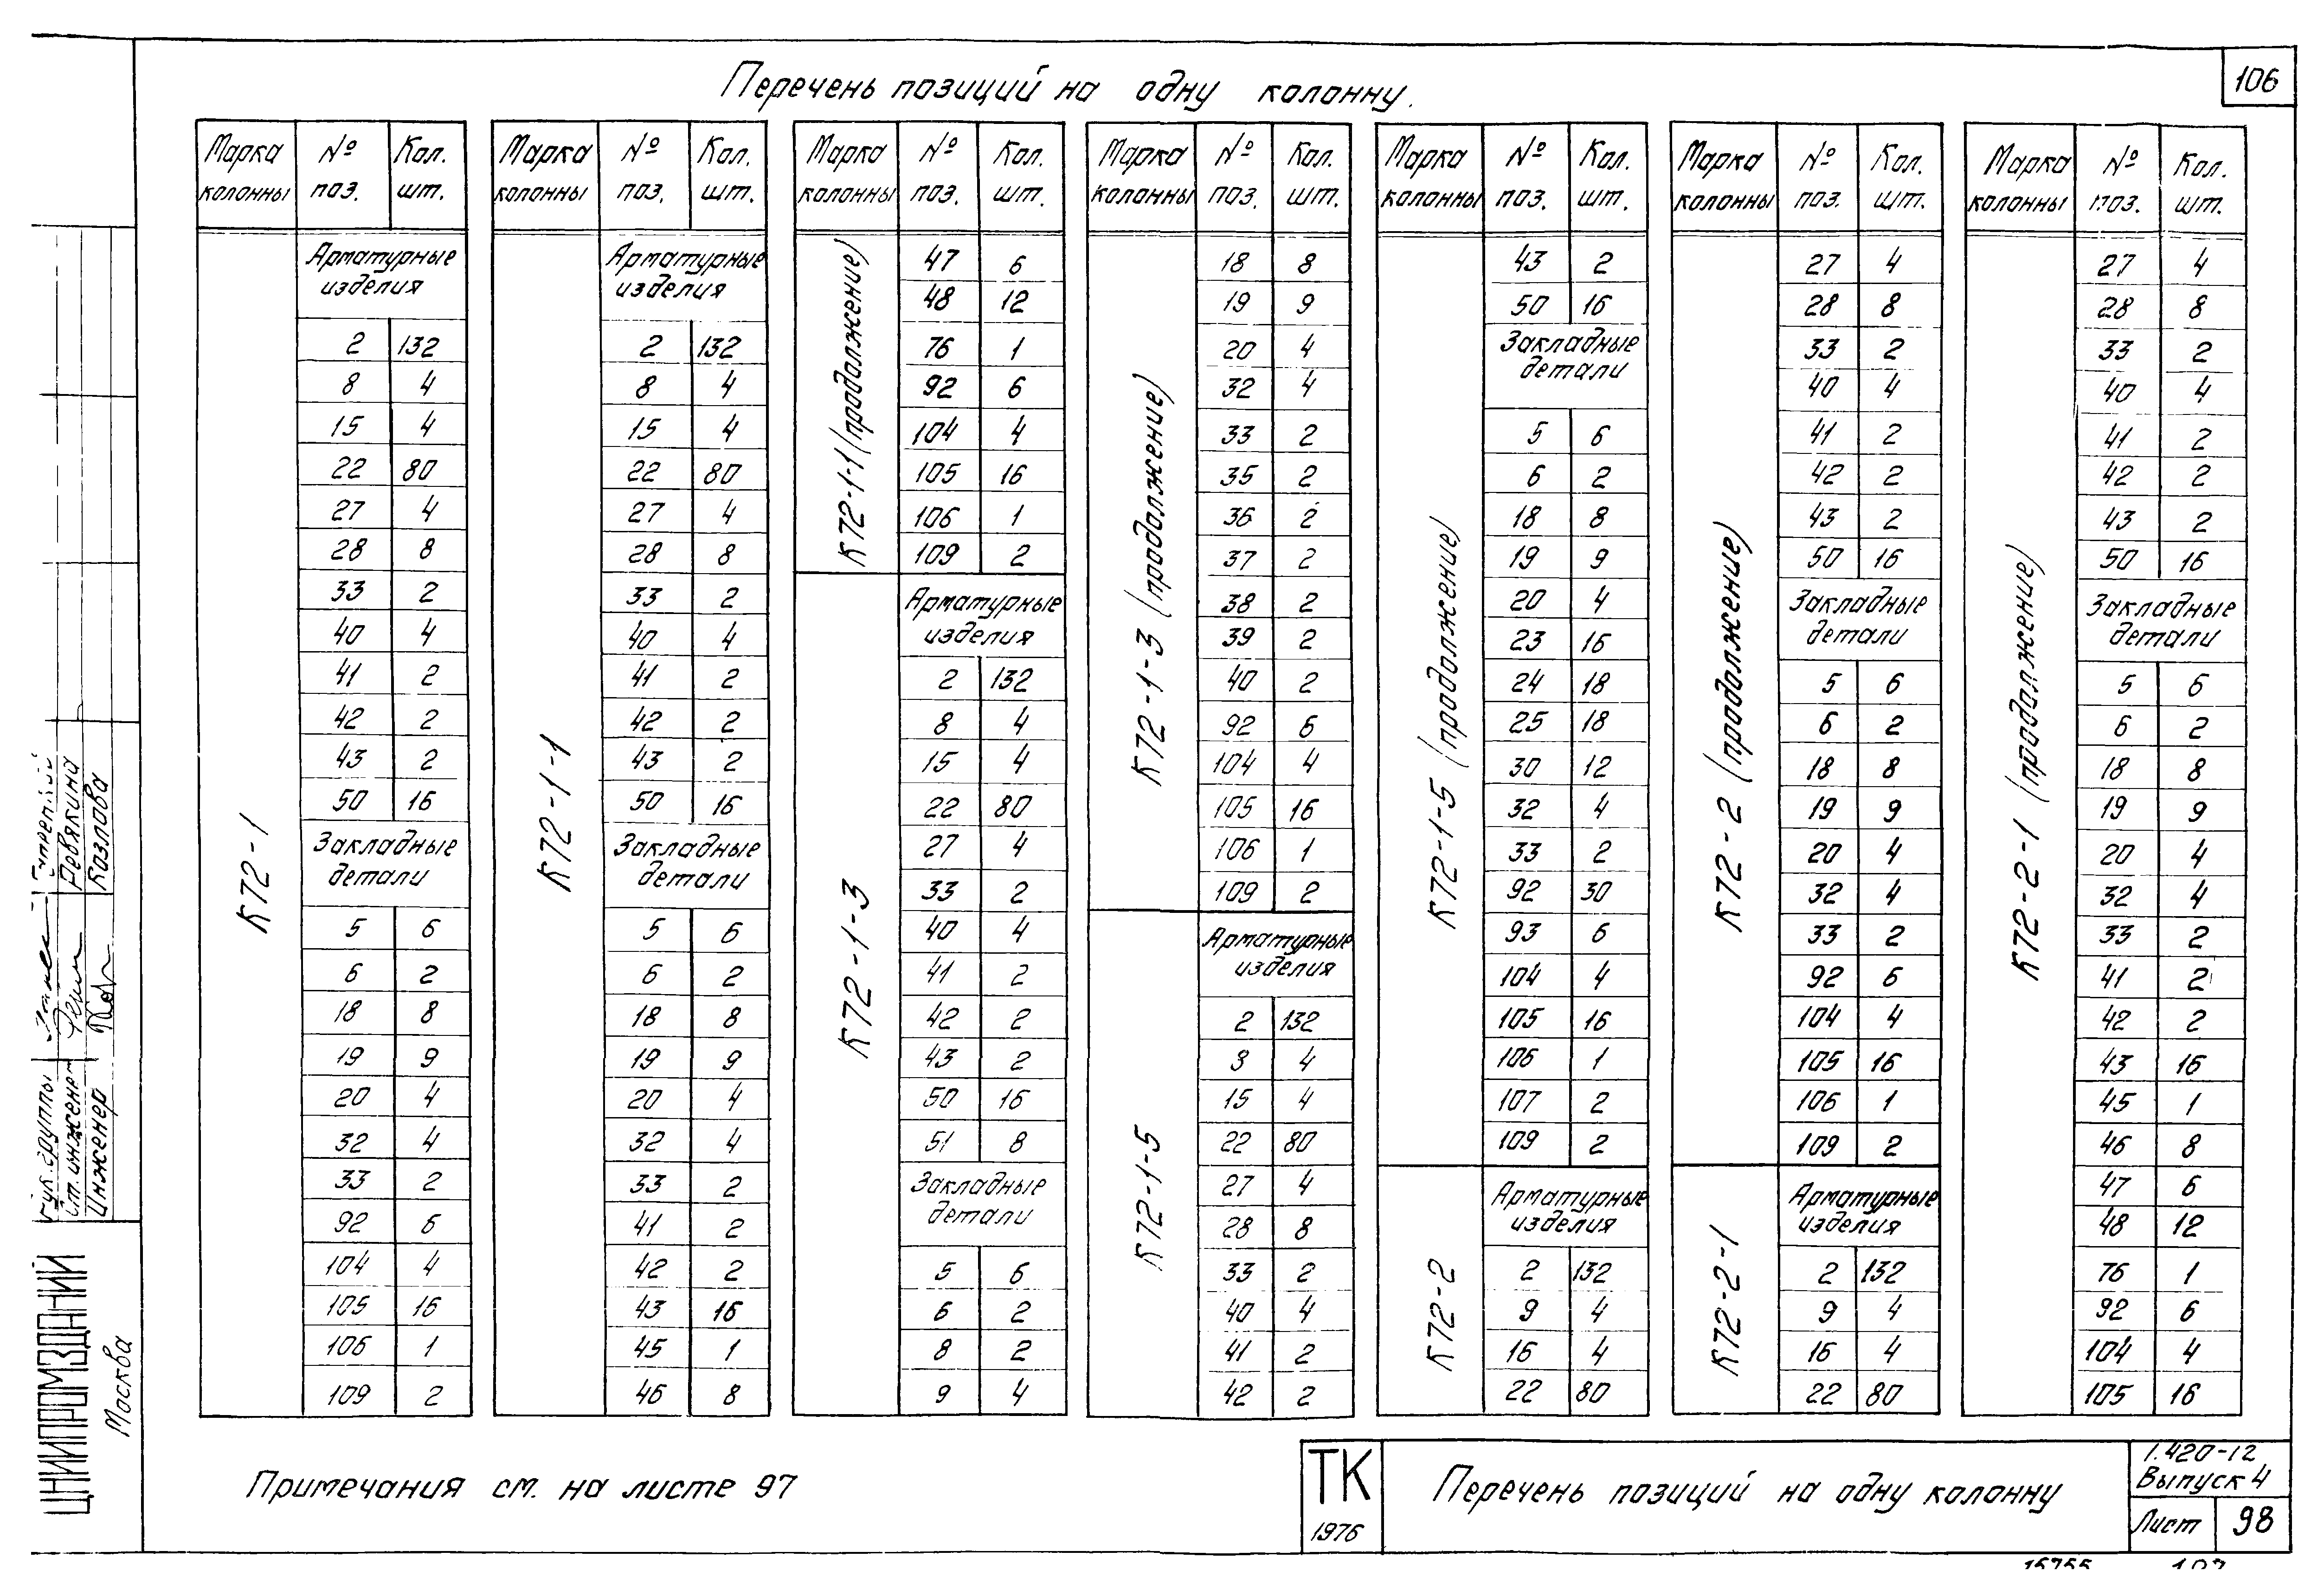 106
Перечень позиций на одну колонну.
Марка колонны № поз. Кол. шт.
К72-1
Арматурные
изделия
2 132
8 4
15 4
22 80
27 4
28 8
33 2
40 4
41 2
42 2
43 2
50 16
Закладные
детали
5 6
6 2
18 8
19 9
20 4
32 4
33 2
92 6
104 4
105 16
106 1
109 2
Марка колонны № поз. Кол. шт.
К72-1-1
Арматурные
изделия
2 132
8 4
15 4
22 80
27 4
28 8
33 2
40 4
41 2
42 2
43 2
50 16
Закладные
детали
5 6
6 2
18 8
19 9
20 4
32 4
33 2
41 2
42 2
43 16
45 1
46 8
Марка колонны № поз. Кол. шт.
К72-1-1 (продолжение)
47 6
48 12
76 1
92 6
104 4
105 16
106 1
109 2
К72-1-3
Арматурные
изделия
2 132
8 4
15 4
22 80
27 4
33 2
40 4
41 2
42 2
43 2
50 16
51 8
Закладные
детали
5 6
6 2
8 2
9 4
Марка колонны № поз. Кол. шт.
К72-1-3 (продолжение)
18 8
19 9
20 4
32 4
33 2
35 2
36 2
37 2
38 2
39 2
40 2
92 6
104 4
105 16
106 1
109 2
К72-1-5
Арматурные
изделия
2 132
8 4
15 4
22 80
27 4
28 8
33 2
40 4
41 2
42 2
Марка колонны № поз. Кол. шт.
К72-1-5 (продолжение)
43 2
50 16
Закладные
детали
5 6
6 2
18 8
19 9
20 4
23 16
24 18
25 18
30 12
32 4
33 2
92 30
93 6
104 4
105 16
106 1
107 2
109 2
К72-2
Арматурные
изделия
2 132
9 4
16 4
22 80
Марка колонны № поз. Кол. шт.
К72-2 (продолжение)
27 4
28 8
33 2
40 4
41 2
42 2
43 2
50 16
Закладные
детали
5 6
6 2
18 8
19 9
20 4
32 4
33 2
92 6
104 4
105 16
106 1
109 2
К72-2-1
Арматурные
изделия
2 132
9 4
16 4
22 80
Марка колонны № поз. Кол. шт.
К72-2-1 (продолжение)
27 4
28 8
33 2
40 4
41 2
42 2
43 2
50 16
Закладные
детали
5 6
6 2
18 8
19 9
20 4
32 4
33 2
41 2
42 2
43 16
45 1
46 8
47 6
48 12
76 1
92 6
104 4
105 16
Примечания см. на листе 97
ТК
1976
Перечень позиций на одну колонну
1.420-12
Выпуск 4
Лист 98
Рук. группы
Ст. инженер Ревякина
Инженер Козлова
ЦНИИПРОМЗДАНИЙ
Москва
15755 107